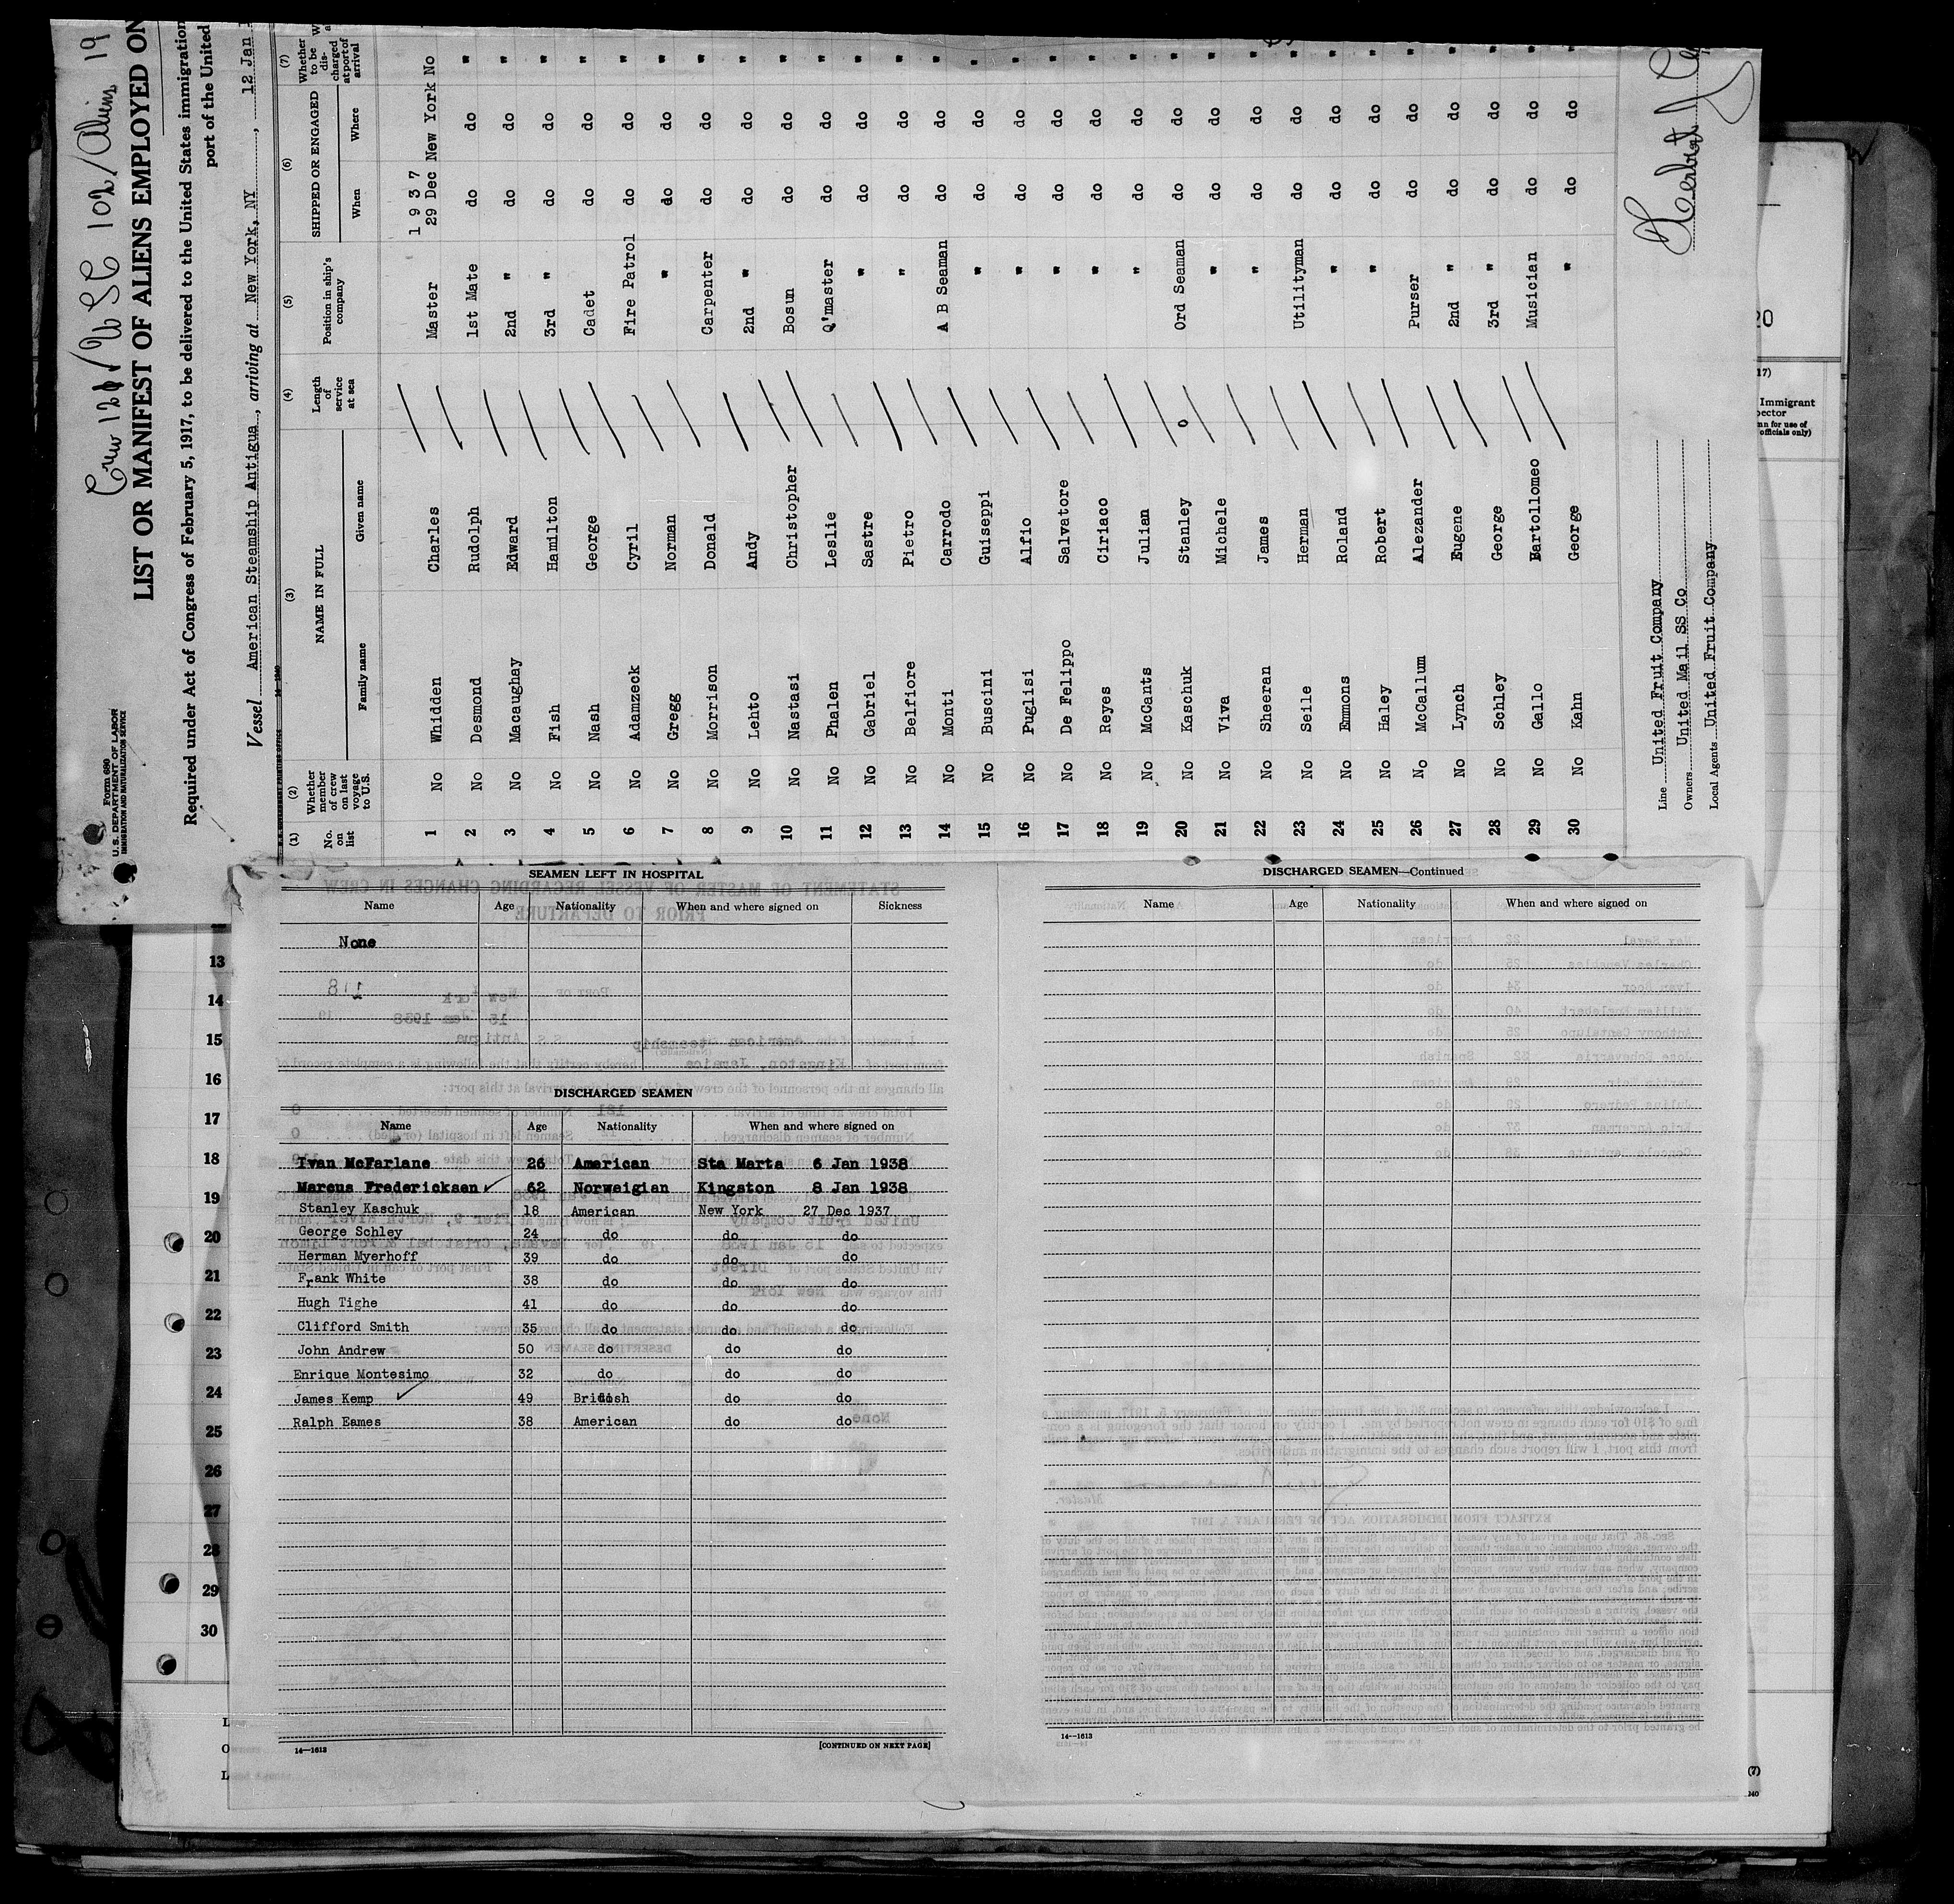 Form 680
U. S. DEPARTMENT OF LABOR
IMMIGRATION AND NATURALIZATION SERVICE
Crew 121 / USC 102 / Aliens 19
LIST OR MANIFEST OF ALIENS EMPLOYED ON
Required under Act of Congress of February 5, 1917, to be delivered to the United States immigration
port of the United
Vessel American Steamship Antigua, arriving at New York, NY, 12 Jan
(1) (2) (3) (4) (5) (6) (7)
No. on list Whether member of crew on last voyage to U.S. NAME IN FULL Length of service at sea Position in ship's company SHIPPED OR ENGAGED Whether to be discharged at port of arrival
Family name Given name When Where
1 9 3 7
1 No Whidden Charles Master 29 Dec New York No
2 No Desmond Rudolph 1st Mate do do "
3 No Macaughay Edward 2nd " do do "
4 No Fish Hamilton 3rd " do do "
5 No Nash George Cadet do do "
6 No Adamzeck Cyril Fire Patrol do do "
7 No Gregg Norman " do do "
8 No Morrison Donald Carpenter do do "
9 No Lehto Andy 2nd " do do "
10 No Nastasi Christopher Bosun do do "
11 No Phalen Leslie Q'master do do "
12 No Gabriel Sastre " do do "
13 No Belfiore Pietro " do do "
14 No Monti Carrodo A B Seaman do do "
15 No Buscini Guiseppi " do do "
16 No Puglisi Alfio " do do "
17 No De Felippo Salvatore " do do "
18 No Reyes Ciriaco " do do "
19 No McGants Julian " do do "
20 No Kaschuk Stanley o Ord Seaman do do "
21 No Viva Michele " do do "
22 No Sheeran James " do do "
23 No Seile Herman Utilityman do do "
24 No Emmons Roland " do do "
25 No Haley Robert " do do "
26 No McCallum Alezander Purser do do "
27 No Lynch Eugene 2nd " do do "
28 No Schley George 3rd " do do "
29 No Gallo Bartollomeo Musician do do "
30 No Kahn George " do do "
Line United Fruit Company
Owners United Mail SS Co
Local Agents United Fruit Company
Herbert
SEAMEN LEFT IN HOSPITAL
Name Age Nationality When and where signed on Sickness
None
DISCHARGED SEAMEN
Name Age Nationality When and where signed on
Ivan McFarlane 26 American Sta Marta 6 Jan 1938
Marcus Fredericksen 62 Norweigian Kingston 8 Jan 1938
Stanley Kaschuk 18 American New York 27 Dec 1937
George Schley 24 do do do
Herman Myerhoff 39 do do do
Frank White 38 do do do
Hugh Tighe 41 do do do
Clifford Smith 35 do do do
John Andrew 50 do do do
Enrique Montesimo 32 do do do
James Kemp 49 British do do
Ralph Eames 38 American do do
14—1613 [CONTINUED ON NEXT PAGE]
DISCHARGED SEAMEN—Continued
Name Age Nationality When and where signed on
14—1613
13
14
15
16
17
18
19
20
21
22
23
24
25
26
27
28
29
30
20
17)
Immigrant
officials only)